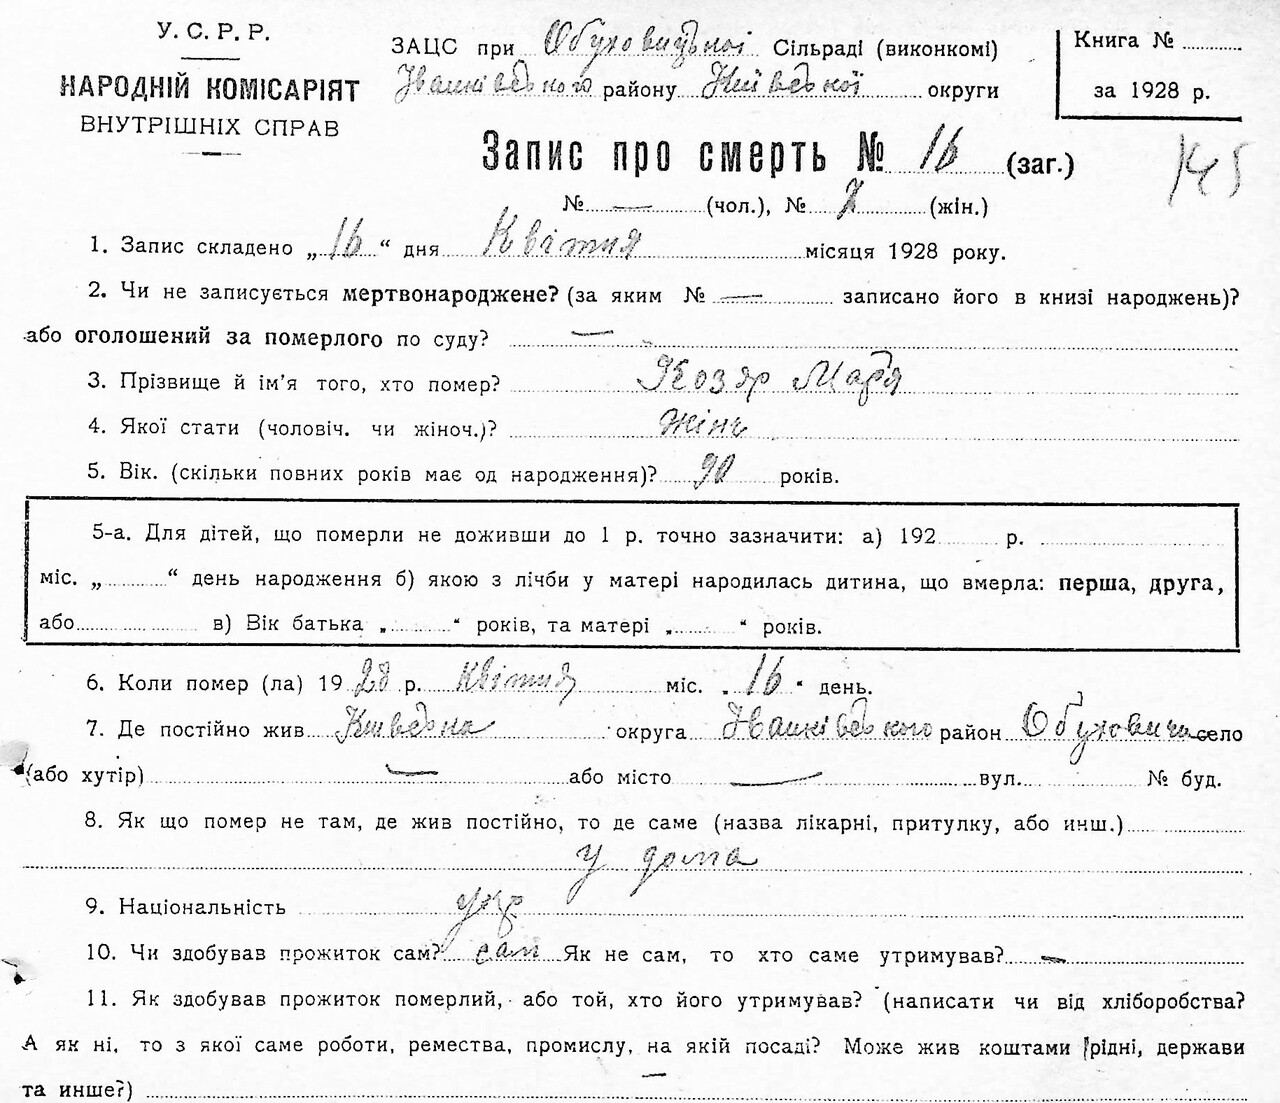 У. С. Р. Р.
НАРОДНІЙ КОМІСАРІЯТ
ВНУТРІШНІХ СПРАВ
ЗАЦС при Обуховицької Сільраді (виконкомі)
Іванківського району Київської округи
Книга №
за 1928 р.
Запис про смерть № 16 (заг.)
145
№ — (чол.), № 7 (жін.)
1. Запис складено „16“ дня Квітня місяця 1928 року.
2. Чи не записується мертвонароджене? (за яким № — записано його в книзі народжень)?
або оголошений за померлого по суду? —
3. Прізвище й ім’я того, хто помер? Козяр Марія
4. Якої стати (чоловіч. чи жіноч.)? жіноч
5. Вік. (скільки повних років має од народження)? 90 років.
5-а. Для дітей, що померли не доживши до 1 р. точно зазначити: а) 192 р.
міс. „ “ день народження б) якою з лічби у матері народилась дитина, що вмерла: перша, друга,
або в) Вік батька „ “ років, та матері „ “ років.
6. Коли помер (ла) 1928 р. квітня міс. „16“ день.
7. Де постійно жив Київська округа Іванківського район Обуховичи село
(або хутір) — або місто — вул. № буд.
8. Як що помер не там, де жив постійно, то де саме (назва лікарні, притулку, або инш.)
у дома
9. Національність укр
10. Чи здобував прожиток сам? сам Як не сам, то хто саме утримував? —
11. Як здобував прожиток померлий, або той, хто його утримував? (написати чи від хліборобства?
А як ні, то з якої саме роботи, ремества, промислу, на якій посаді? Може жив коштами рідні, держави
та инше?) —